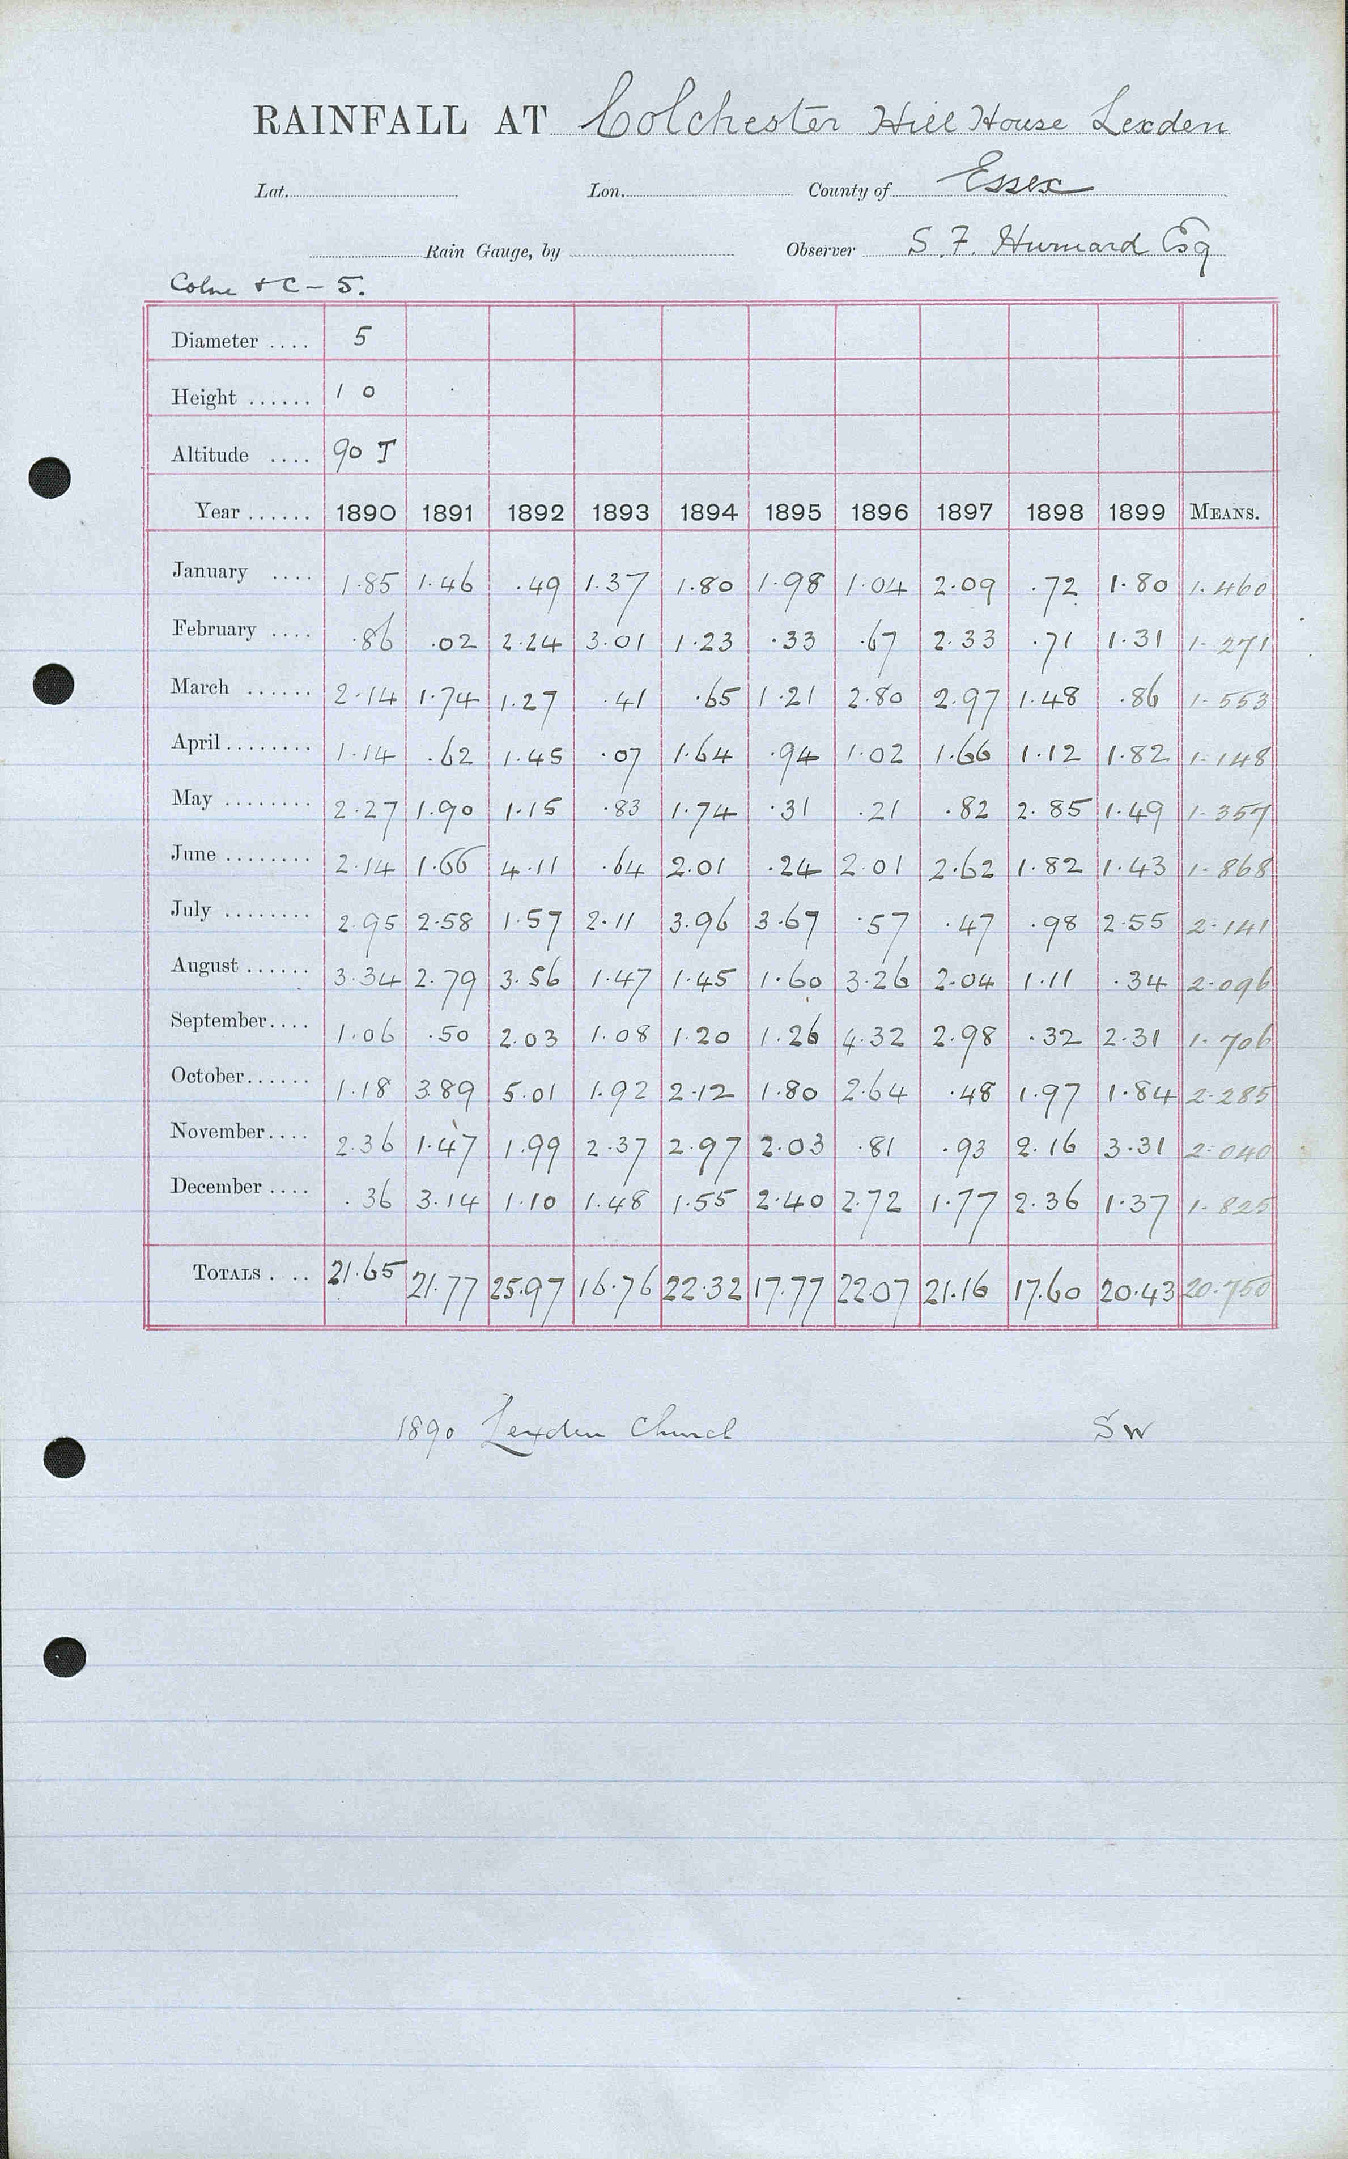 RAINFALL AT Colchester Hill House Lexden
Lat. Lon. County of Essex
Rain Gauge, by Observer S. F. Hurnard Esq
Colne & C - 5.
Diameter .... 5
Height ...... 1 0
Altitude .... 90 T
Year ...... 1890 1891 1892 1893 1894 1895 1896 1897 1898 1899 MEANS.
January .... 1.85 1.46 .49 1.37 1.80 1.98 1.04 2.09 .72 1.80 1.460
February .... .86 .02 2.24 3.01 1.23 .33 .67 2.33 .71 1.31 1.271
March ...... 2.14 1.74 1.27 .41 .65 1.21 2.80 2.97 1.48 .86 1.553
April ........ 1.14 .62 1.45 .07 1.64 .94 1.02 1.66 1.12 1.82 1.148
May ........ 2.27 1.90 1.15 .83 1.74 .31 .21 .82 2.85 1.49 1.357
June ........ 2.14 1.66 4.11 .64 2.01 .24 2.01 2.62 1.82 1.43 1.868
July ........ 2.95 2.58 1.57 2.11 3.96 3.67 .57 .47 .98 2.55 2.141
August ...... 3.34 2.79 3.56 1.47 1.45 1.60 3.26 2.04 1.11 .34 2.096
September.... 1.06 .50 2.03 1.08 1.20 1.26 4.32 2.98 .32 2.31 1.706
October...... 1.18 3.89 5.01 1.92 2.12 1.80 2.64 .48 1.97 1.84 2.285
November.... 2.36 1.47 1.99 2.37 2.97 2.03 .81 .93 2.16 3.31 2.040
December .... .36 3.14 1.10 1.48 1.55 2.40 2.72 1.77 2.36 1.37 1.825
TOTALS . .. 21.65 21.77 25.97 16.76 22.32 17.77 22.07 21.16 17.60 20.43 20.750
1890 Lexden Church S W